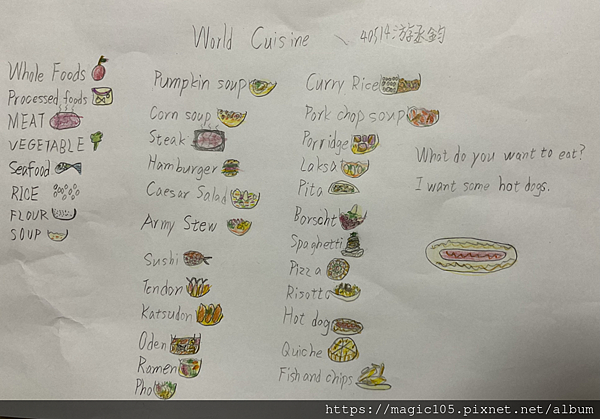 World Cuisine 、 40514游丞鈞
Whole Foods
Processed foods
MEAT
VEGETABLE
Seafood
RICE
FLOUR
SOUP
Pumpkin soup
Corn soup
Steak
Hamburger
Caesar Salad
Army Stew
Sushi
Tendon
Katsudon
Oden
Ramen
Pho
Curry Rice
Pork chop soup
Porridge
Laksa
Pita
Borsoht
Spaghetti
Pizza
Risotto
Hot dog
Quiche
Fish and chips
What do you want to eat?
I want some hot dogs.
https://magic105.pixnet.net/album